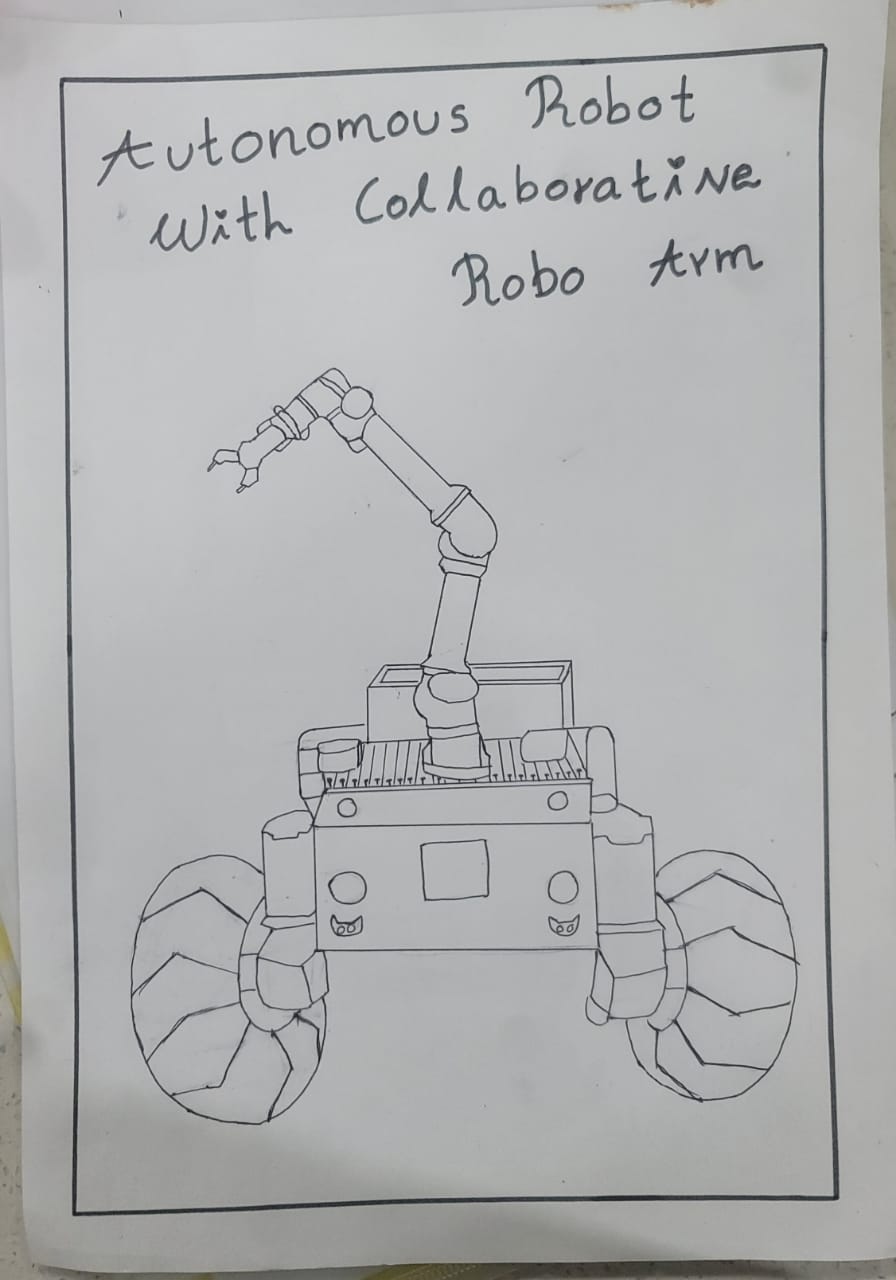 Autonomous Robot
With Collaborative
Robo Arm